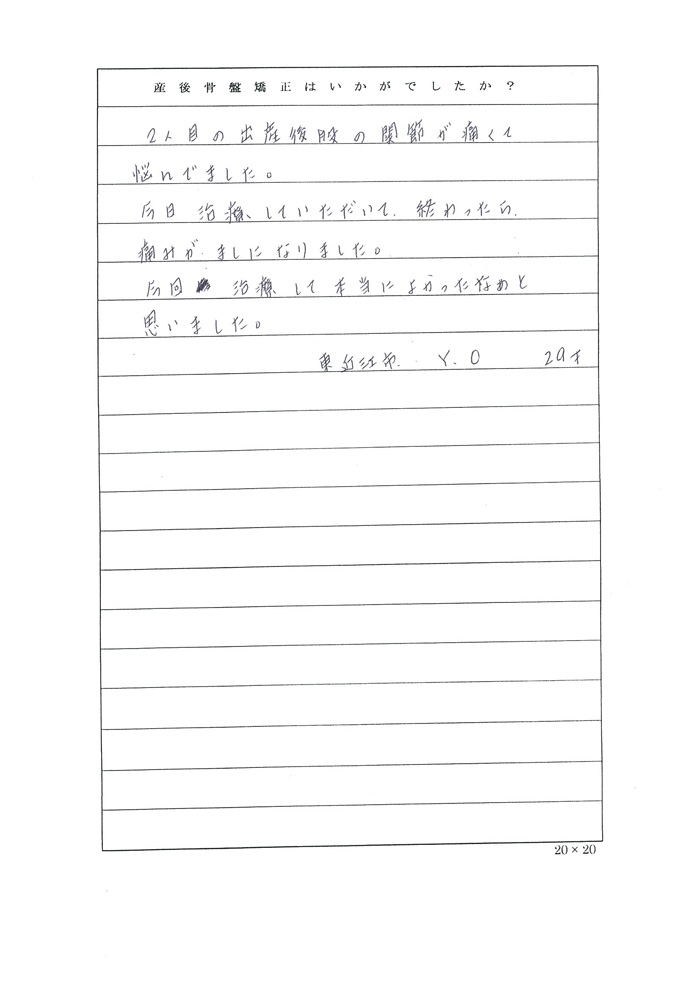 産後骨盤矯正はいかがでしたか?
2人目の出産後股の関節が痛くて
悩んでました。
今日治療していただいて、終わったら、
痛みがましになりました。
今回治療して本当によかったなあと
思いました。
東近江市 Y.O 29才
20×20